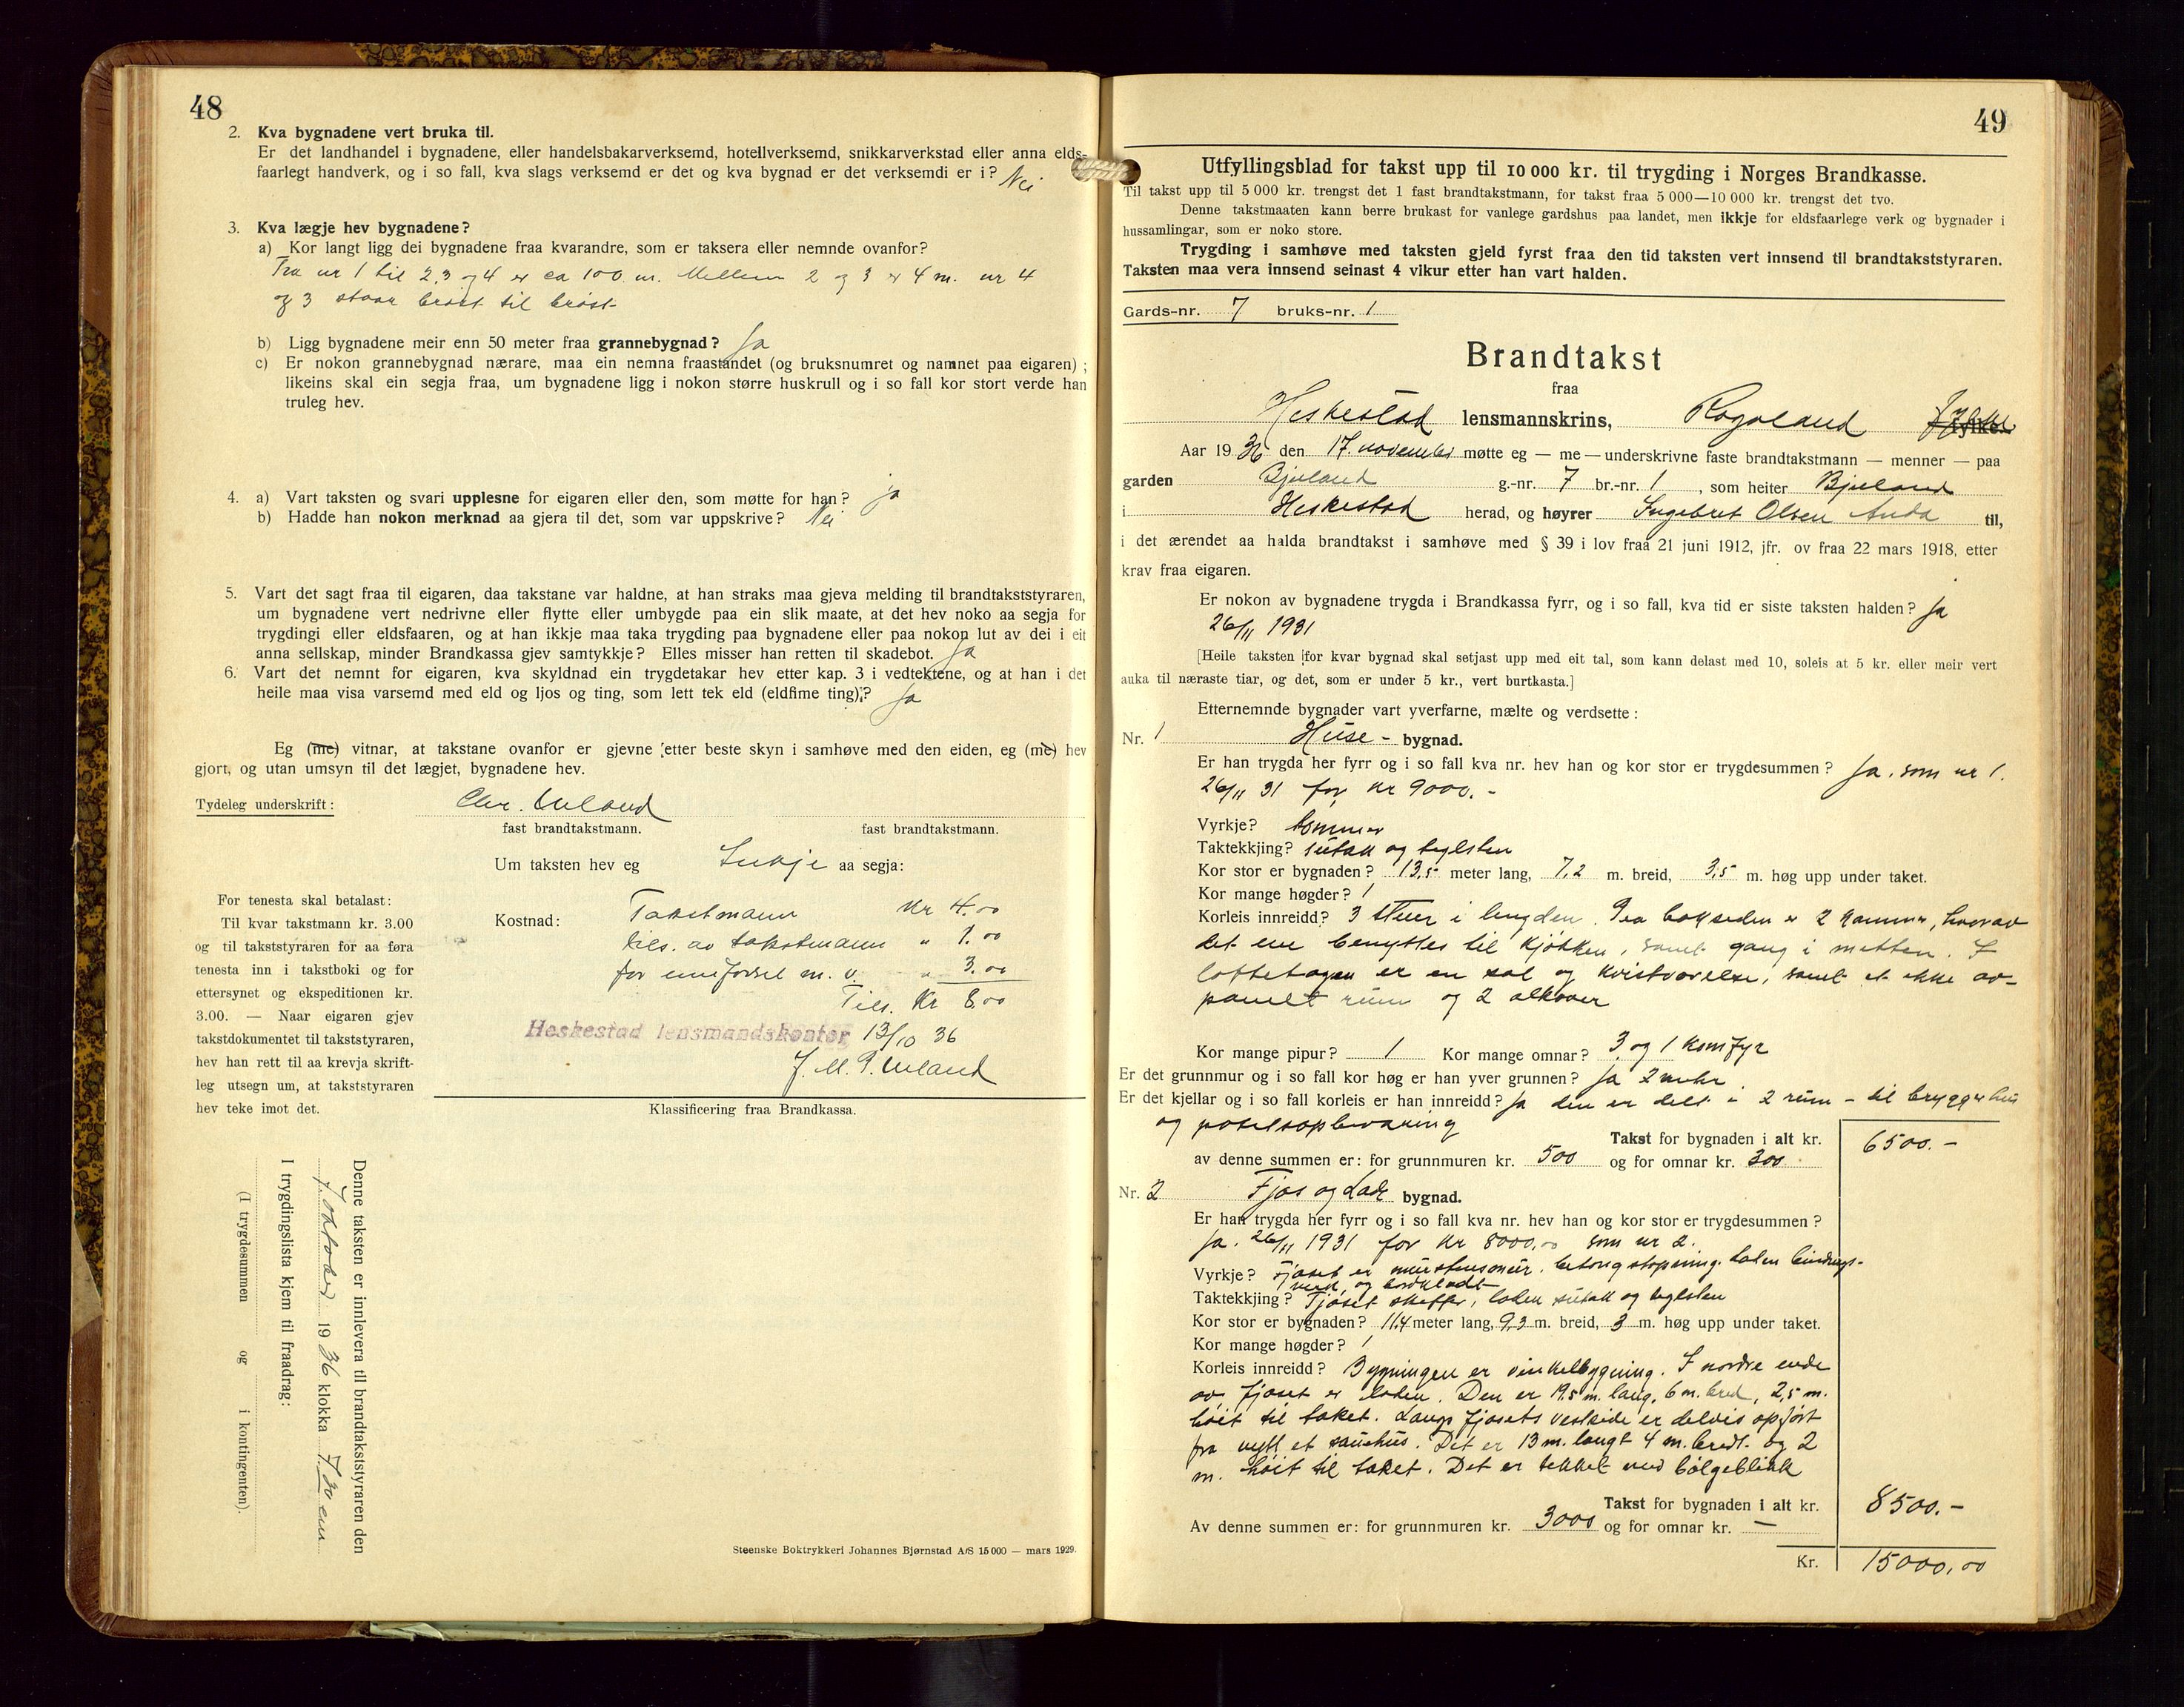 48
2. Kva bygnadene vert bruka til.
Er det landhandel i bygnadene, eller handelsbakarverksemd, hotellverksemd, snikkarverkstad eller anna elds-
faarlegt handverk, og i so fall, kva slags verksemd er det og kva bygnad er det verksemdi er i? Nei
3. Kva lægje hev bygnadene?
a) Kor langt ligg dei bygnadene fraa kvarandre, som er taksera eller nemnde ovanfor?
Fra nr 1 til 2, 3 og 4 er ca 100 m. Mellem 2 og 3 er 4 m. nr 4
og 3 staar brøst til brøst
b) Ligg bygnadene meir enn 50 meter fraa grannebygnad? Ja
c) Er nokon grannebygnad nærare, maa ein nemna fraastandet (og bruksnumret og namnet paa eigaren) ;
likeins skal ein segja fraa, um bygnadene ligg i nokon større huskrull og i so fall kor stort verde han
truleg hev.
4. a) Vart taksten og svari upplesne for eigaren eller den, som møtte for han? ja
b) Hadde han nokon merknad aa gjera til det, som var uppskrive? Nei
5. Vart det sagt fraa til eigaren, daa takstane var haldne, at han straks maa gjeva melding til brandtakststyraren,
um bygnadene vert nedrivne eller flytte eller umbygde paa ein slik maate, at det hev noko aa segja for
trygdingi eller eldsfaaren, og at han ikkje maa taka trygding paa bygnadene eller paa nokon lut av dei i eit
anna sellskap, minder Brandkassa gjev samtykkje? Elles misser han retten til skadebot. Ja
6. Vart det nemnt for eigaren, kva skyldnad ein trygdetakar hev etter kap. 3 i vedtektene, og at han i det
heile maa visa varsemd med eld og ljos og ting, som lett tek eld (eldfime ting)? Ja
Eg (me) vitnar, at takstane ovanfor er gjevne etter beste skyn i samhøve med den eiden, eg (me) hev
gjort, og utan umsyn til det lægjet, bygnadene hev.
Tydeleg underskrift: Chr. Ueland
fast brandtakstmann. fast brandtakstmann.
Um taksten hev eg Inkje aa segja:
For tenesta skal betalast:
Til kvar takstmann kr. 3.00
og til takststyraren for aa føra
tenesta inn i takstboki og for
ettersynet og ekspeditionen kr.
3.00. — Naar eigaren gjev
takstdokumentet til takststyraren,
hev han rett til aa krevja skrift-
leg utsegn um, at takststyraren
hev teke imot det.
Kostnad: Takstmann Kr 4.00
tils. av takstmann " 1.00
for innførsel m. v. " 3.00
Tils. Kr 8.00
Heskestad lensmandskontor 13/10 36
J. M. P. Ueland
Klassificering fraa Brandkassa.
Denne taksten er innlevera til brandtakststyraren den
7. oktober 1936 klokka 7.30 em
I trygdingslista kjem til fraadrag:
(I trygdesummen og i kontingenten).
Steenske Boktrykkeri Johannes Bjørnstad A/S 15 000 — mars 1929.
49
Utfyllingsblad for takst upp til 10 000 kr. til trygding i Norges Brandkasse.
Til takst upp til 5 000 kr. trengst det 1 fast brandtakstmann, for takst fraa 5 000—10 000 kr. trengst det tvo.
Denne takstmaaten kann berre brukast for vanlege gardshus paa landet, men ikkje for eldsfaarlege verk og bygnader i
hussamlingar, som er noko store.
Trygding i samhøve med taksten gjeld fyrst fraa den tid taksten vert innsend til brandtakststyraren.
Taksten maa vera innsend seinast 4 vikur etter han vart halden.
Gards-nr. 7 bruks-nr. 1
Brandtakst
fraa
Heskestad lensmannskrins, Rogaland fylke.
Aar 1936 den 17. november møtte eg — me — underskrivne faste brandtakstmann — menner — paa
garden Bjuland g.-nr. 7 br.-nr. 1, som heiter Bjuland
i Heskestad herad, og høyrer Ingebret Olsen Anda til,
i det ærendet aa halda brandtakst i samhøve med § 39 i lov fraa 21 juni 1912, jfr. ov fraa 22 mars 1918, etter
krav fraa eigaren.
Er nokon av bygnadene trygda i Brandkassa fyrr, og i so fall, kva tid er siste taksten halden? Ja
26/11 1931
[Heile taksten for kvar bygnad skal setjast upp med eit tal, som kann delast med 10, soleis at 5 kr. eller meir vert
auka til næraste tiar, og det, som er under 5 kr., vert burtkasta.]
Etternemnde bygnader vart yverfarne, mælte og verdsette :
Nr. 1 Huse- bygnad.
Er han trygda her fyrr og i so fall kva nr. hev han og kor stor er trygdesummen? Ja, som nr 1.
26/11 31 for kr 9000.-
Vyrkje? tømmer
Taktekkjing? sutak og teglsten
Kor stor er bygnaden? 13,5 meter lang, 7,2 m. breid, 3,5 m. høg upp under taket.
Kor mange høgder? 1
Korleis innreidd? 3 stuer i lengden. Paa baksiden er 2 kammer, hvorav
det ene benyttes til kjøkken, samt gang i midten. I
loftetagen er en sal og kvistværelse, samt et ikke av-
panelt rum og 2 alkover
Kor mange pipur? 1 Kor mange omnar? 3 og 1 komfyr
Er det grunnmur og i so fall kor høg er han yver grunnen? Ja 2 meter
Er det kjellar og i so fall korleis er han innreidd? Ja den er delt i 2 rum - til bryggerhus
og potetopbevaring
Takst for bygnaden i alt kr. 6500.-
av denne summen er: for grunnmuren kr. 500 og for omnar kr. 300
Nr. 2 Fjøs og Lade bygnad.
Er han trygda her fyrr og i so fall kva nr. hev han og kor stor er trygdesummen?
Ja. 26/11 1931 for kr 8000,00 som nr 2.
Vyrkje? Fjøset er murstensmur, betongstøpning. Laden bindings-
verk og bordkledt
Taktekkjing? Fjøset skiffer, laden sutak og teglsten
Kor stor er bygnaden? 11,4 meter lang, 9,3 m. breid, 3 m. høg upp under taket.
Kor mange høgder? 1
Korleis innreidd? Bygningen er vinkelbygning. I nordre ende
av fjøset er laden. Den er 19.5 m. lang, 6 m. bred, 2,5 m.
høit til taket. Langs fjøsets vestside er delvis opført
fra nytt et sauehus. Det er 13 m. langt 4 m. bredt. og 2
m. høit til taket. Det er tekket med bølgeblikk
Takst for bygnaden i alt kr. 8500.-
Av denne summen er: for grunnmuren kr. 3000 og for omnar kr. —
Kr. 15000,00